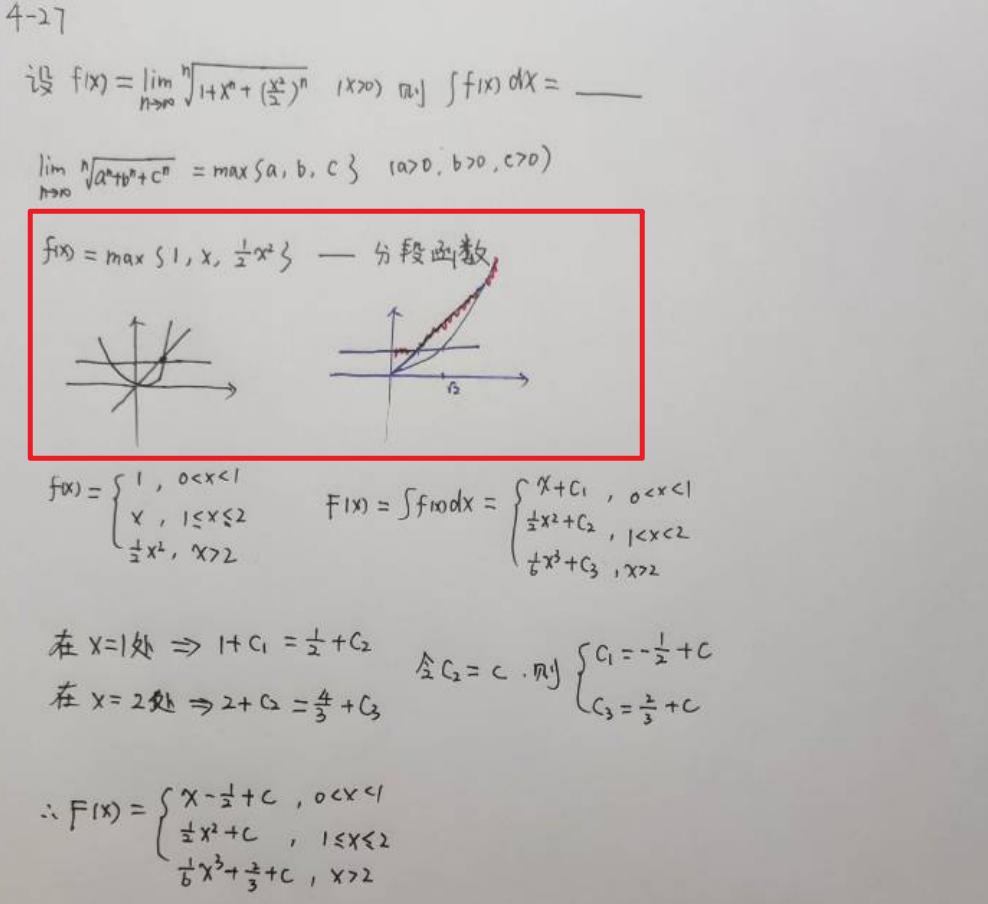 4-27
设 f(x) = lim_{n→∞} ⁿ√(1+xⁿ+(x²/2)ⁿ) (x>0) 则 ∫f(x)dx = ____
lim_{n→∞} ⁿ√(aⁿ+bⁿ+cⁿ) = max{a, b, c} (a>0, b>0, c>0)
f(x) = max{1, x, ½x²} — 分段函数
√2
f(x) = { 1, 0<x<1
x, 1≤x≤2
½x², x>2
F(x) = ∫f(x)dx = { x+C₁, 0<x<1
½x²+C₂, 1<x<2
⅙x³+C₃, x>2
在 x=1处 ⇒ 1+C₁ = ½+C₂
在 x=2处 ⇒ 2+C₂ = 4/3+C₃
令C₂=C.则 { C₁=-½+C
C₃=⅔+C
∴ F(x) = { x-½+C, 0<x<1
½x²+C, 1≤x≤2
⅙x³+⅔+C, x>2